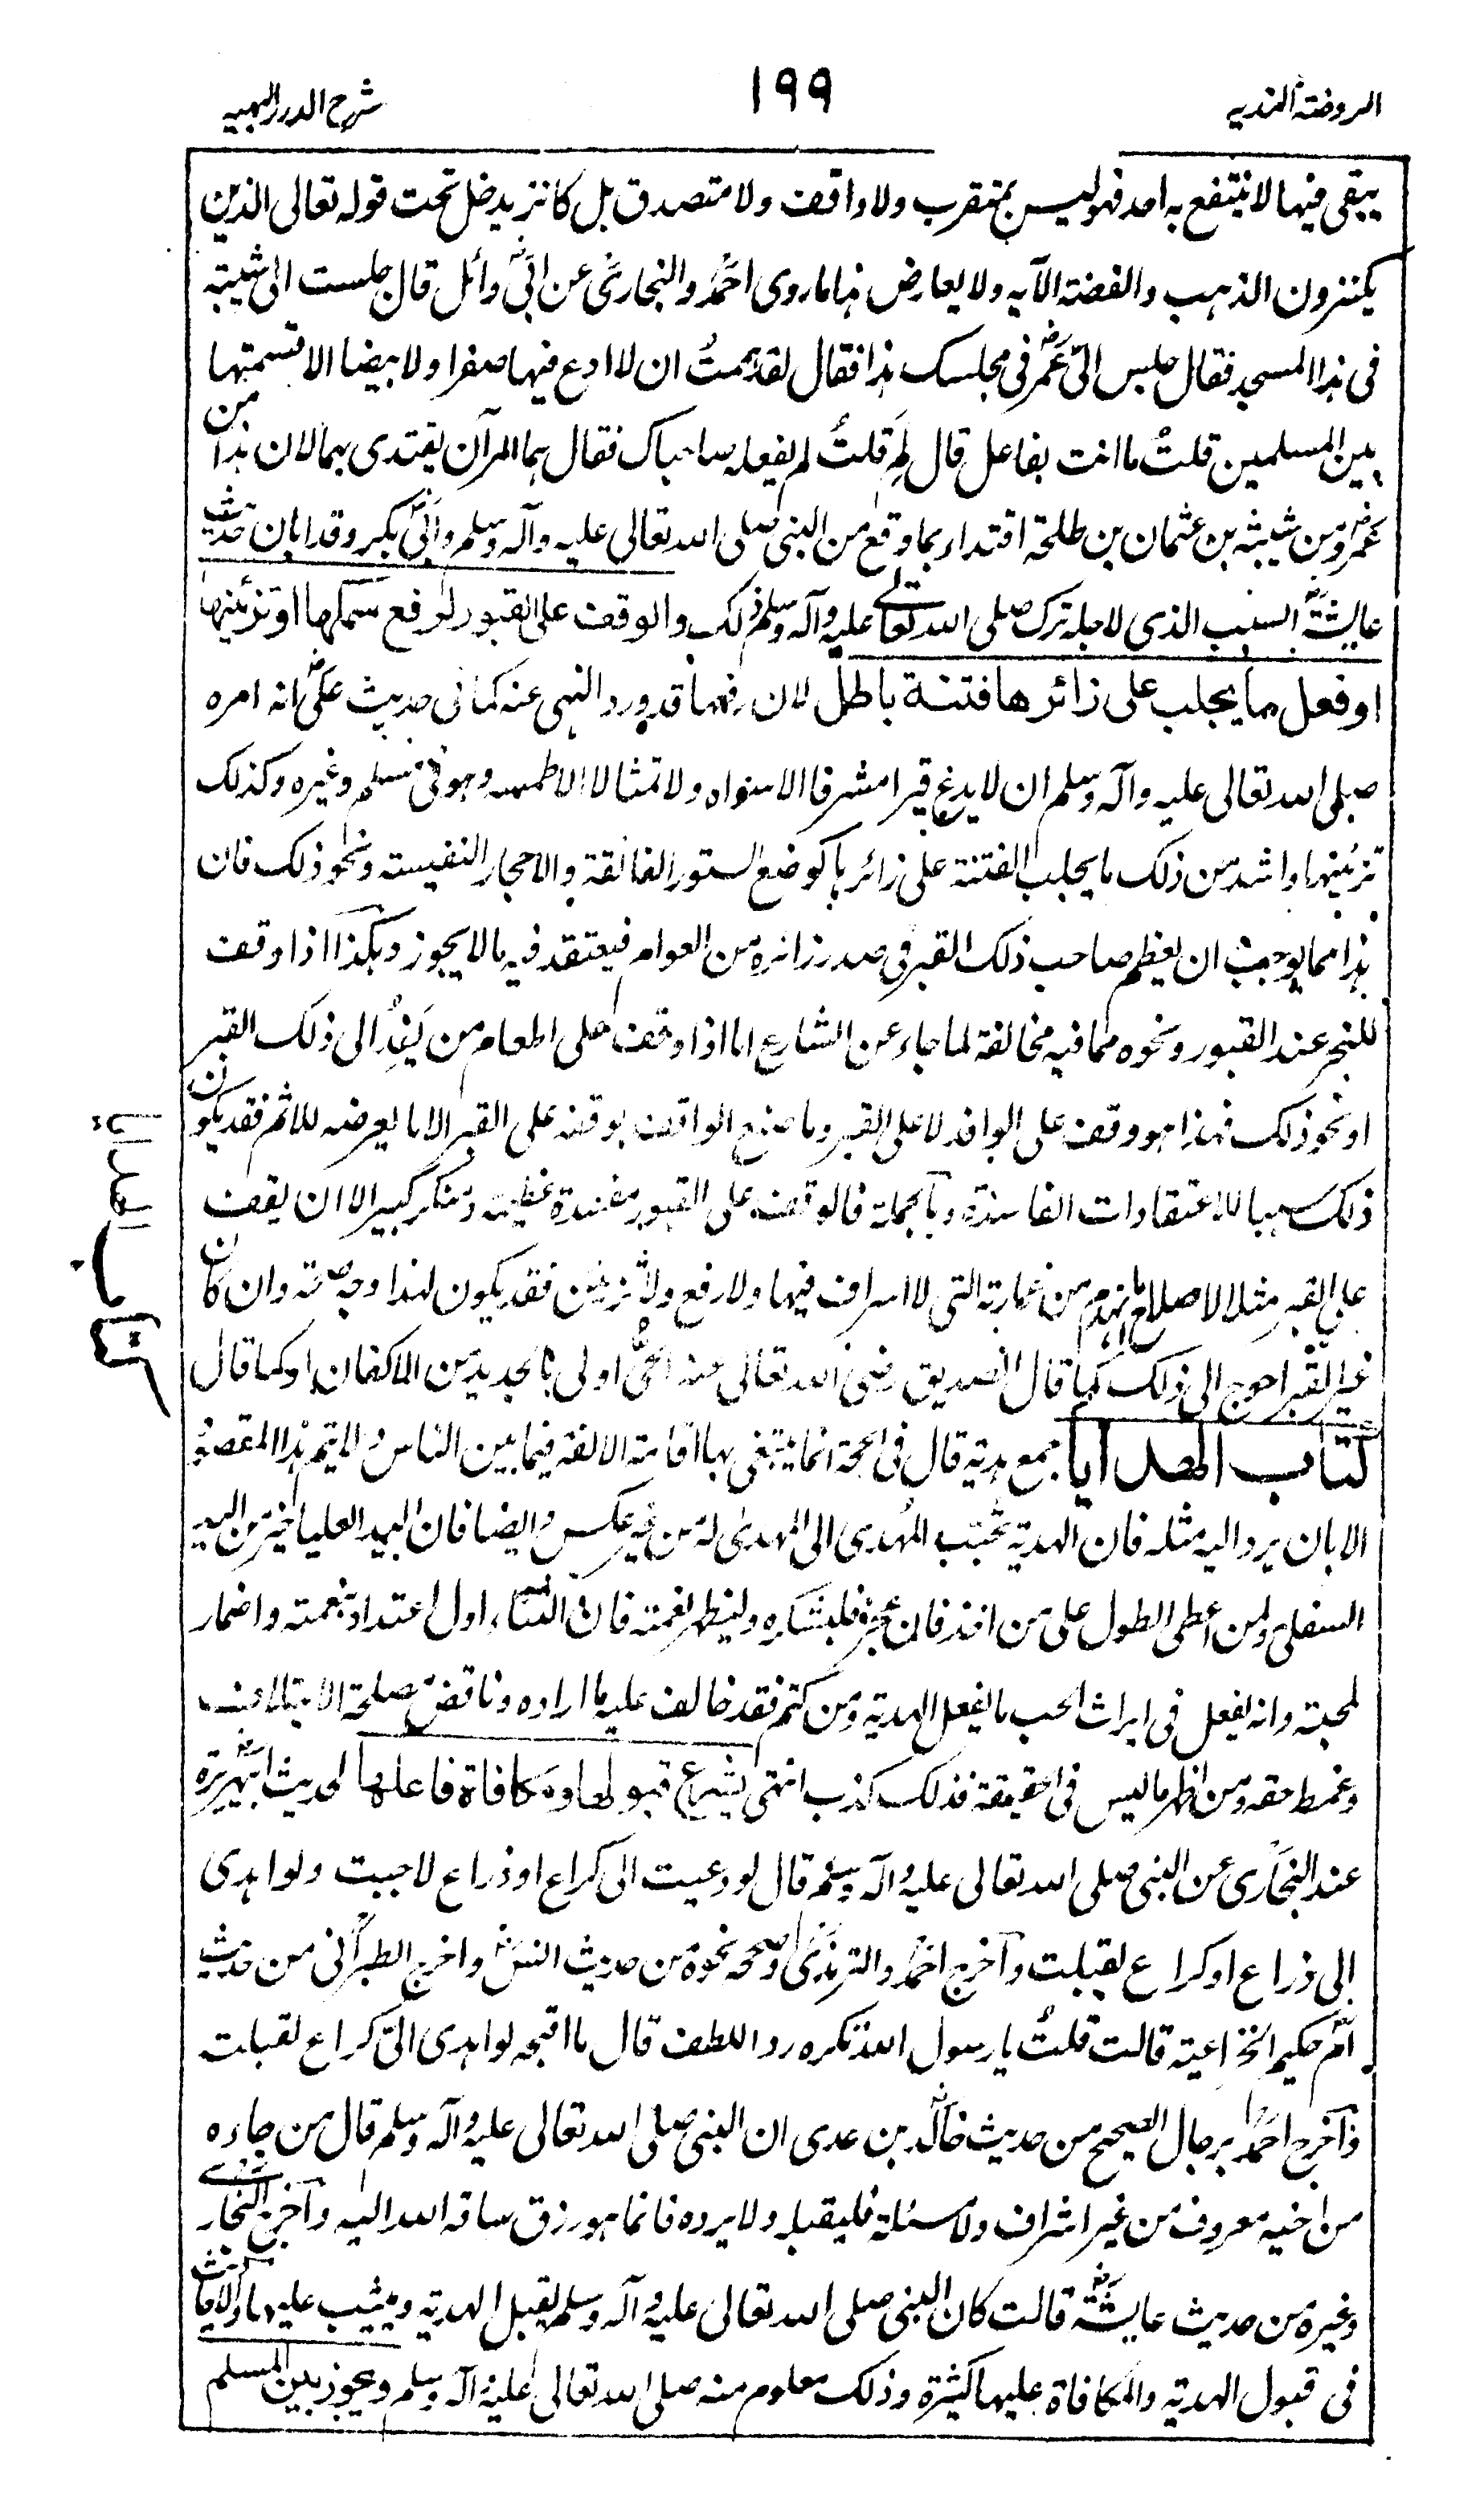 الروضة الندیه
۱۹۹
شرح الدرر البهیه
یبقی فیها لا ینتفع به احد فهو لیس بمتقرب ولا واقف ولا متصدق بل کانز یدخل تحت قوله تعالی الذین
یکنزون الذهب والفضة الآیه ولا یعارض هذا ما روی احمد والبخاری عن ابی وائل قال جلست الی شیبة
فی هذا المسجد فقال جلس الیّ عمر فی مجلسک هذا فقال لقد هممتُ ان لا ادع فیها صفرا ولا بیضا الا قسمتها
بین المسلمین قلتُ ما انت بفاعل قال لِمَ قلتُ لم یفعله صاحباک فقال هما المرآن یقتدی بهما لان هذا من
عمر ومن شیبة بن عثمان بن طلحة اقتداء بما وقع من النبی صلی الله تعالی علیه وآله وسلم وابی بکر وقد ابان حدیث
عایشة السبب الذی لاجله ترک صلی الله تعالی علیه وآله وسلم ذلک والوقف علی القبور لرفع سمکها او تزئینها
او فعل ما یجلب علی زائرها فتنة باطل لان رفعها قد ورد النهی عنه کما فی حدیث علی انه امره
صلی الله تعالی علیه وآله وسلم ان لا یدع قبرا مشرفا الا سواه ولا تمثالا الا طمسه وهو فی مسلم وغیره وکذلک
تزئینها واشد من ذلک ما یجلب الفتنة علی زائرها کوضع الستور الفائقة والاحجار النفیسة ونحو ذلک فان
هذا مما یوجب ان یعظم صاحب ذلک القبر فی صدر زائره من العوام فیعتقد فیه ما لا یجوز وهکذا اذا وقف
للنحر عند القبور ونحوه مما فیه مخالفة لما جاء عن الشارع اما اذا وقف علی اطعام من یَفِدُ الی ذلک القبر
او نحو ذلک فهذا هو وقف علی الوافد لا علی القبر وما صنع الواقف بوقفه علی القبر الا ما یعرضه للاثم فقد یکون
ذلک سببا للاعتقادات الفاسدة وبالجملة فالوقف علی القبور مفسدة عظیمة ومنکر کبیر الا ان یقف
علی القبر مثلا لاصلاح ما انهدم من عمارته التی لا اسراف فیها ولا رفع ولا تزئین فقد یکون لهذا وجه صحة وان کان
غیر القبر احوج الی ذلک کما قال الصدیق رضی الله تعالی عنه الحیُّ اولی بالجدید من الاکفان او کما قال
کتاب الهدایا جمع هدیة قال فی الحجة انما ینبغی بها اقامة الالفة فیما بین الناس ولا یتم هذا المقصود
الا بان یرد الیه مثله فان الهدیة تحبّب المُهدی الی المهدیٰ له من غیر عکس وایضا فان الید العلیا خیر من الید
السفلی ولمن اعطی الطول علی من اخذ فان عجز فلیشکره ولیظهر نعمته فان الثناء اول اعتداد بنعمته واضمار
لمحبته وانه یفعل فی ایراث الحب ما یفعل الهدیة ومن کتم فقد خالف علیه ما اراده وناقض مصلحة الایتلاف
وغمط حقه ومن اظهر ما لیس فی الحقیقة فذلک کذب انتهی یشرع قبولها ومکافاة فاعلها لحدیث ابی هریرة
عند البخاری عن النبی صلی الله تعالی علیه وآله وسلم قال لو دعیت الی کراع او ذراع لاجبت ولو اهدی
الی ذراع او کراع لقبلت وآخرج احمد والترمذی وصححه نحوه من حدیث انس واخرج الطبرانی من حدیث
ام حکیم الخزاعیة قالت قلتُ یا رسول الله تکره رد اللطف قال ما اقبحه لو اهدی الیّ کراع لقبلت
وآخرج احمد برجال الصحیح من حدیث خالد بن عدی ان النبی صلی الله تعالی علیه وآله وسلم قال من جاءه
من اخیه معروف من غیر اشراف ولا مسئلة فلیقبله ولا یرده فانما هو رزق ساقه الله الیه وآخرج البخاری
وغیره من حدیث عایشة قالت کان النبی صلی الله تعالی علیه وآله وسلم یقبل الهدیة ویثیب علیها والاحادیث
فی قبول الهدیة والمکافاة علیها کثیرة وذلک معلوم منه صلی الله تعالی علیه وآله وسلم ویجوز بین المسلم
کتاب الهدایا